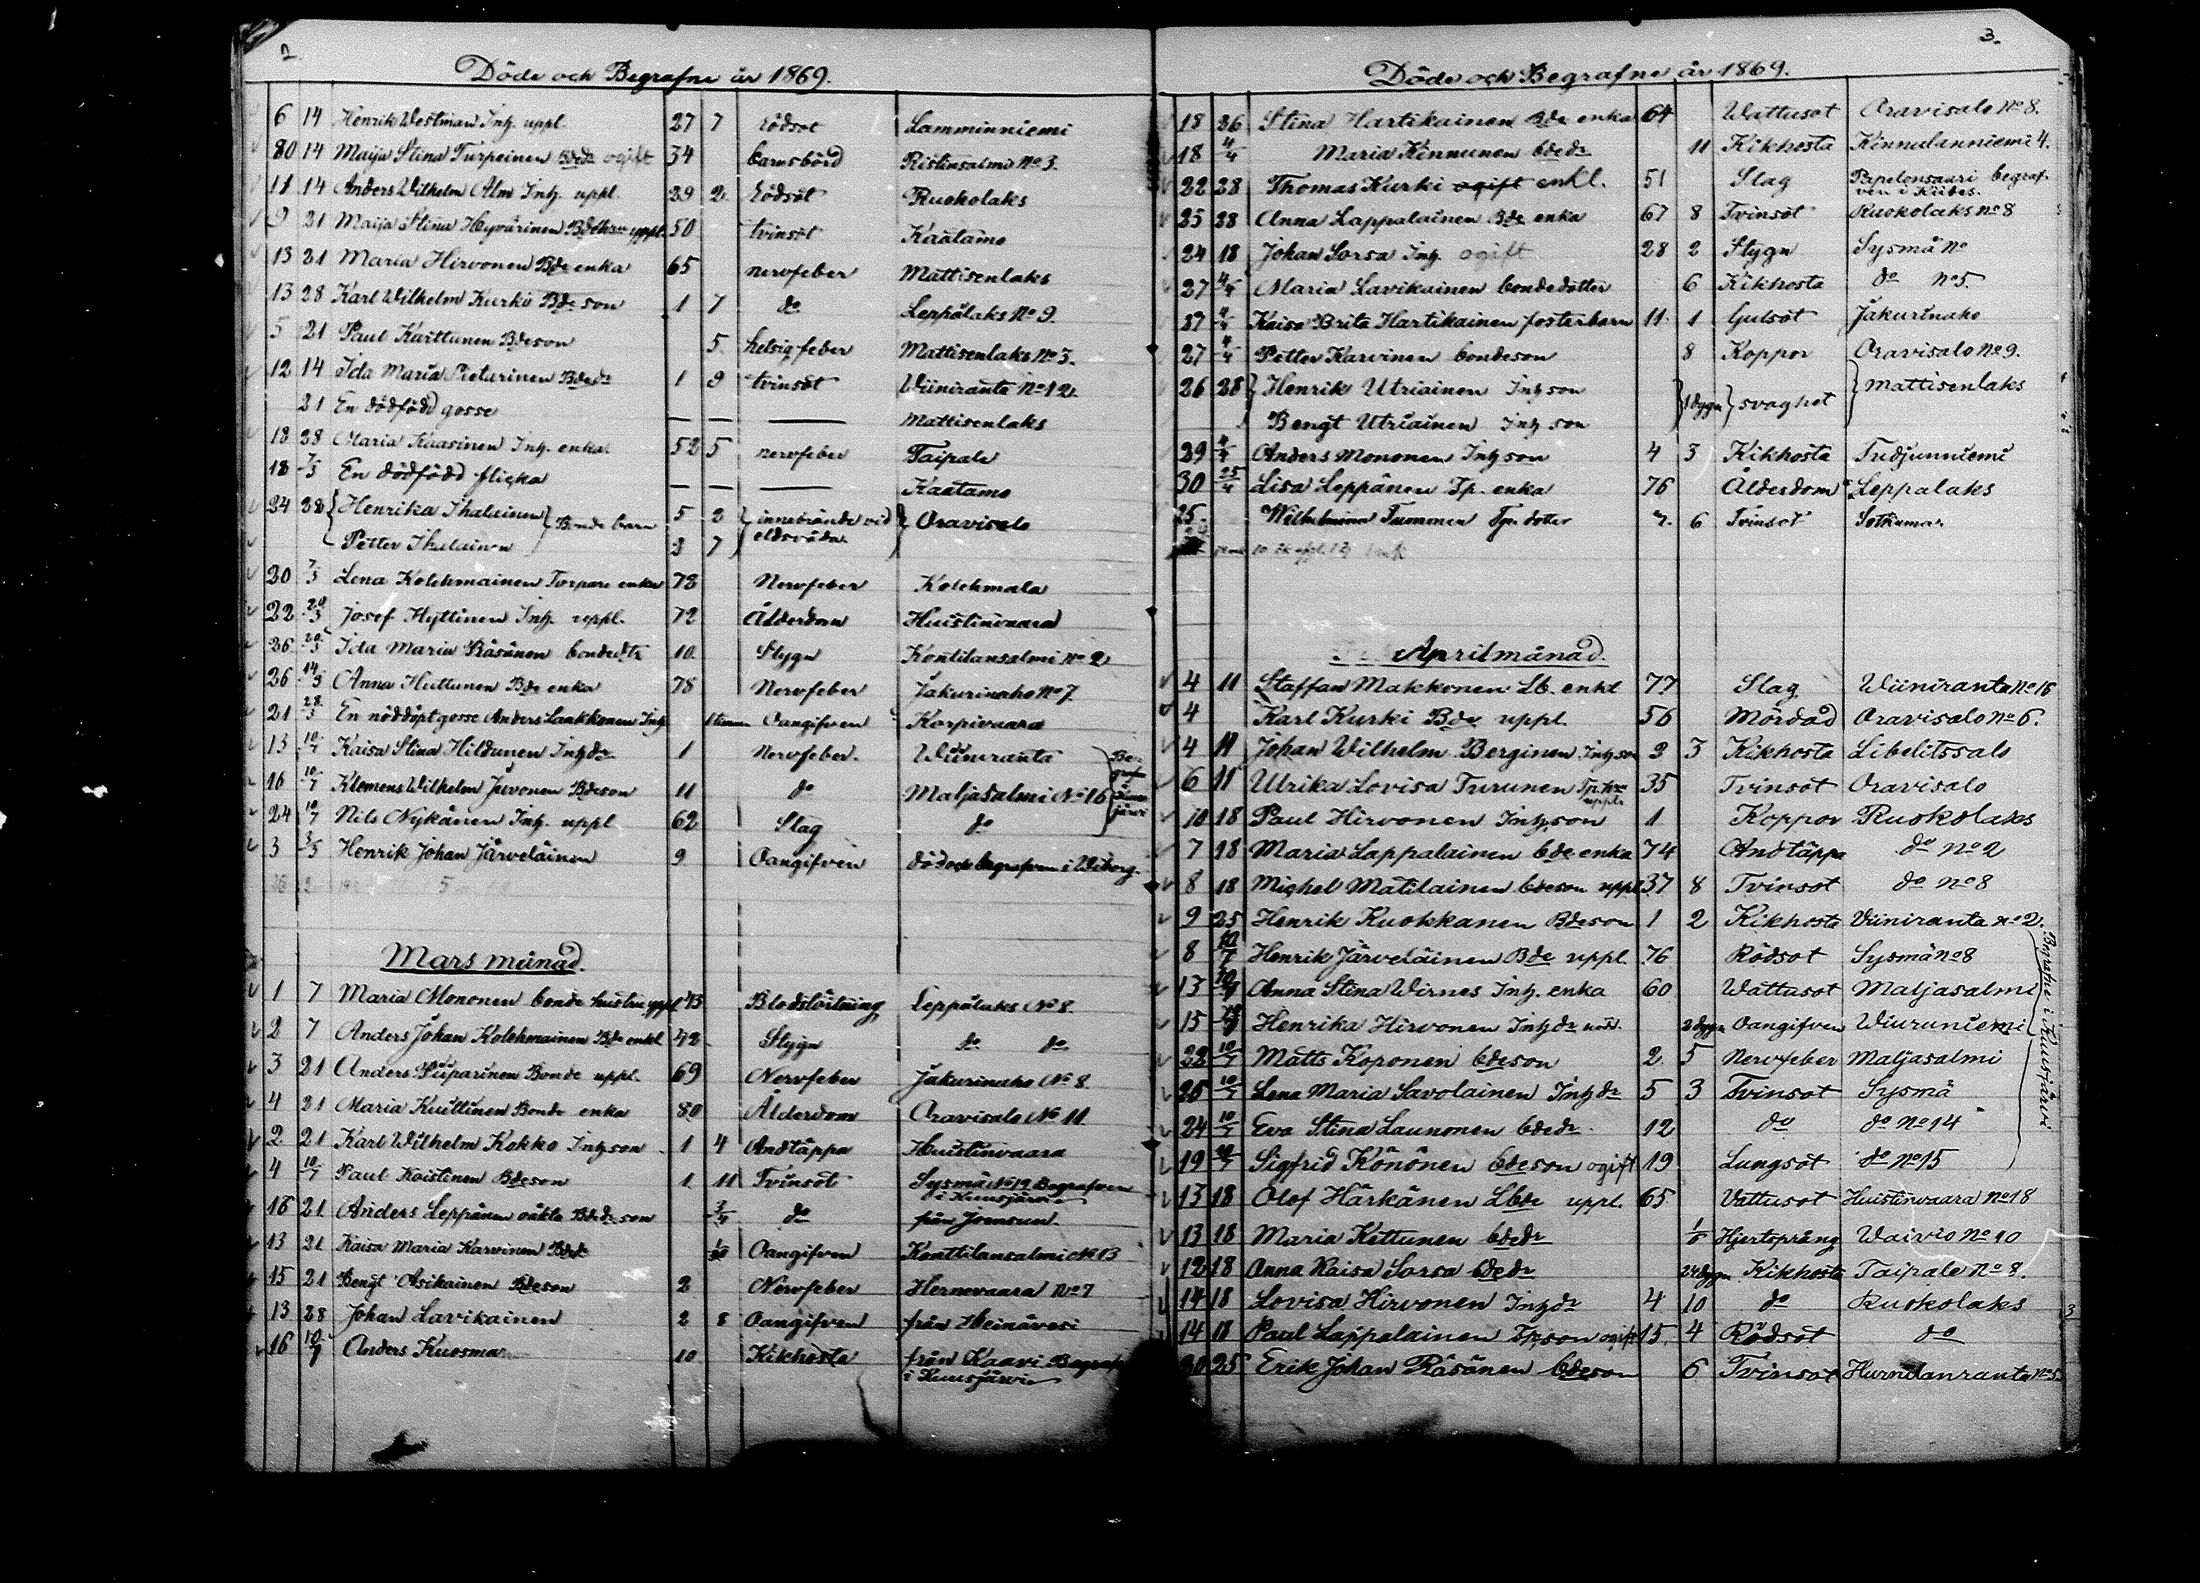 2
Döde och Begrafne år 1869.
6 14 Henrik Westman Inh. uppl. 27 7 Rödsot Lamminniemi
30 14 Maija Stina Turpeinen Bdedr ogift 34 barnsbörd Ristinsalmi No 3.
11 14 Anders Wilhelm Alm Inh. uppl. 29 2 Rödsot Ruokolaks
9 21 Maija Stina Hyvärinen uppl. 50 tvinsot Kaatamo
13 21 Maria Hirvonen Bde enka 65 nervfeber Mattisenlaks
13 28 Karl Wilhelm Kurki Bde son 1 7 do Leppölaks No 9.
5 21 Paul Karttunen Bdeson 5 feber Mattisenlaks No 3.
12 14 Ida Maria Pieturinen Bdedr 1 9 tvinsot Wiiniranta No 12.
21 En dödfödd gosse — — — Mattisenlaks
18 28 Maria Kaasinen Inh. enka 52 5 nervfeber Taipale
18 7/3 En dödfödd flicka — — — Kaatamo
24 28 Henrika Ihalainen Bonde barn 5 2 innebrände vid Oravisalo
Petter Ihalainen 3 7 eldsvåda
20 7/3 Lena Kolehmainen Torpare enka 72 Nervfeber Kolehmala
22 20/3 Josef Hyttinen Inh. uppl. 72 Ålderdom Huistinvaara
26 20/3 Ida Maria Räsänen bondedtr 10 Stygn Kontilansalmi No 2
26 14/3 Anna Huttunen Bde enka 78 Nervfeber Jakurinaho No 7.
21 28/3 En nöddöpt gosse Anders Laakkonen Inh. 1 timme Oangifven Karpivaara
13 10/7 Kaisa Stina Hildunen Inhdr 1 Nervfeber. Wiiniranta
16 10/7 Klemens Wilhelm Juvonen Bdeson 11 do Maljasalmi No 16
24 10/7 Nils Nykänen Inh. uppl 62 Slag do
3 3/3 Henrik Johan Järveläinen 9 Oangifven död och begrafven i Wiborg.
Mars månad.
1 7 Maria Mononen bonde hustru uppl 43 Blodstörtning Leppölaks No 8.
2 7 Anders Johan Kolehmainen Bde enkl. 42 Stygn do do
3 21 Anders Piiparinen Bonde uppl. 69 Nervfeber Jakurinaho No 8.
4 21 Maria Kuittinen Bonde enka 80 Ålderdom Oravisalo No 11
2 21 Karl Wilhelm Kokko Inhson 1 4 Andtäppa Huistinvaara
4 10/7 Paul Koistinen Bdeson 1 11 Tvinsot Sysmä No 12 Begrafven
i Kuusjärvi
16 21 Anders Leppänen oäkta Bdedr son 3/4 do från Joensuu.
13 21 Kaisa Maria Karvinen Bdedr 1/30 Oangifven Konttilansalmi No 13
15 21 Bengt Asikainen Bdeson 2 Nervfeber Hernevaara No 7
13 28 Johan Lavikainen 2 8 Oangifven från Heinävesi
16 10/7 Anders Kuosma 10 Kikhosta från Kaavi
i Kuusjärvi
3.
Döde och Begrafne år 1869.
18 26 Stina Hartikainen Bde enka 64 Wattusot Oravisalo No 8.
18 4/4 Maria Kinnunen bdedr 11 Kikhosta Kinnulanniemi 4.
22 28 Thomas Kurki ogift enkl. 51 Slag Papelonsaari begraf-
ven i Kides.
25 28 Anna Lappalainen Bde enka 67 8 Tvinsot Ruokolaks No 8
24 18 Johan Sorsa Inh. ogift 28 2 Stygn Sysmä No
27 4/4 Maria Lavikainen bondedotter 6 Kikhosta do No 5.
27 4/4 Kaisa Brita Hartikainen fosterbarn 11 1 Gulsot Jakurinaho
27 4/4 Petter Karvinen bondeson 8 Koppor Oravisalo No 9.
26 28 Henrik Utriainen Inhson 1 dygn svaghet Mattisenlaks
Bengt Utriainen Inh son
29 4/4 Anders Mononen Inhson 4 3 Kikhosta Tudjunniemi
30 25/4 Lisa Leppänen Tp. enka 76 Ålderdom Leppalaks
25 Wilhelmina Tuononen Tp. dotter 7 6 Tvinsot Sotkuma.
Aprilmånad.
4 11 Staffan Makkonen Lb. enkl 77 Slag Wiiniranta No 16
4 Karl Kurki Bde uppl. 56 Mördad Oravisalo No 6.
4 11 Johan Wilhelm Berginen Inhson 3 3 Kikhosta Libelitssalo
6 11 Ulrika Lovisa Turunen Tp. hru 35 Tvinsot Oravisalo
uppl.
10 18 Paul Hirvonen Inhson 1 Koppor Ruokolaks
7 18 Maria Lappalainen bde enka 74 Andtäppa do No 2
8 18 Michel Matilainen bdeson uppl 37 8 Tvinsot do No 8
9 25 Henrik Kuokkanen Bdeson 1 2 Kikhosta Viiniranta No 2.
8 10/7 Henrik Järveläinen Bde uppl. 76 Rödsot Sysmä No 8
13 10/7 Anna Stina Wirnes Inh. enka 60 Wattusot Maljasalmi
15 10/7 Henrika Hirvonen Inhdr nöd. 2 dygn Oangifven Wiuruniemi
22 10/7 Matts Koponen bdeson 2 5 Nervfeber Maljasalmi
26 10/7 Lena Maria Savolainen Inhdr 5 3 Tvinsot Sysmä
24 10/7 Eva Stina Launonen bdedr. 12 do do No 14
19 10/7 Sigfrid Könönen bdeson ogift 19 Lungsot do No 15
Begrafne i Kuusjärvi
13 18 Olof Härkänen Lbde uppl. 65 Vattusot Huistinvaara No 18
13 18 Maria Kettunen bdedr Hjertsprång Waivio No 10
12 18 Anna Kaisa Sorsa bdedr Kikhosta Taipale No 8.
14 18 Lovisa Hirvonen Inhdr 4 10 do Ruokolaks
14 18 Paul Lappalainen Tp.son ogift 15 4 Rödsot do
20 25 Erik Johan Räsänen bdeson 6 Tvinsot No 5